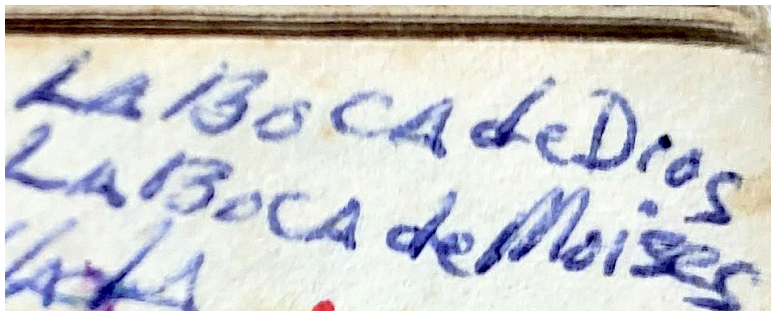 LA BOCA de Dios
LA BOCA de Moises